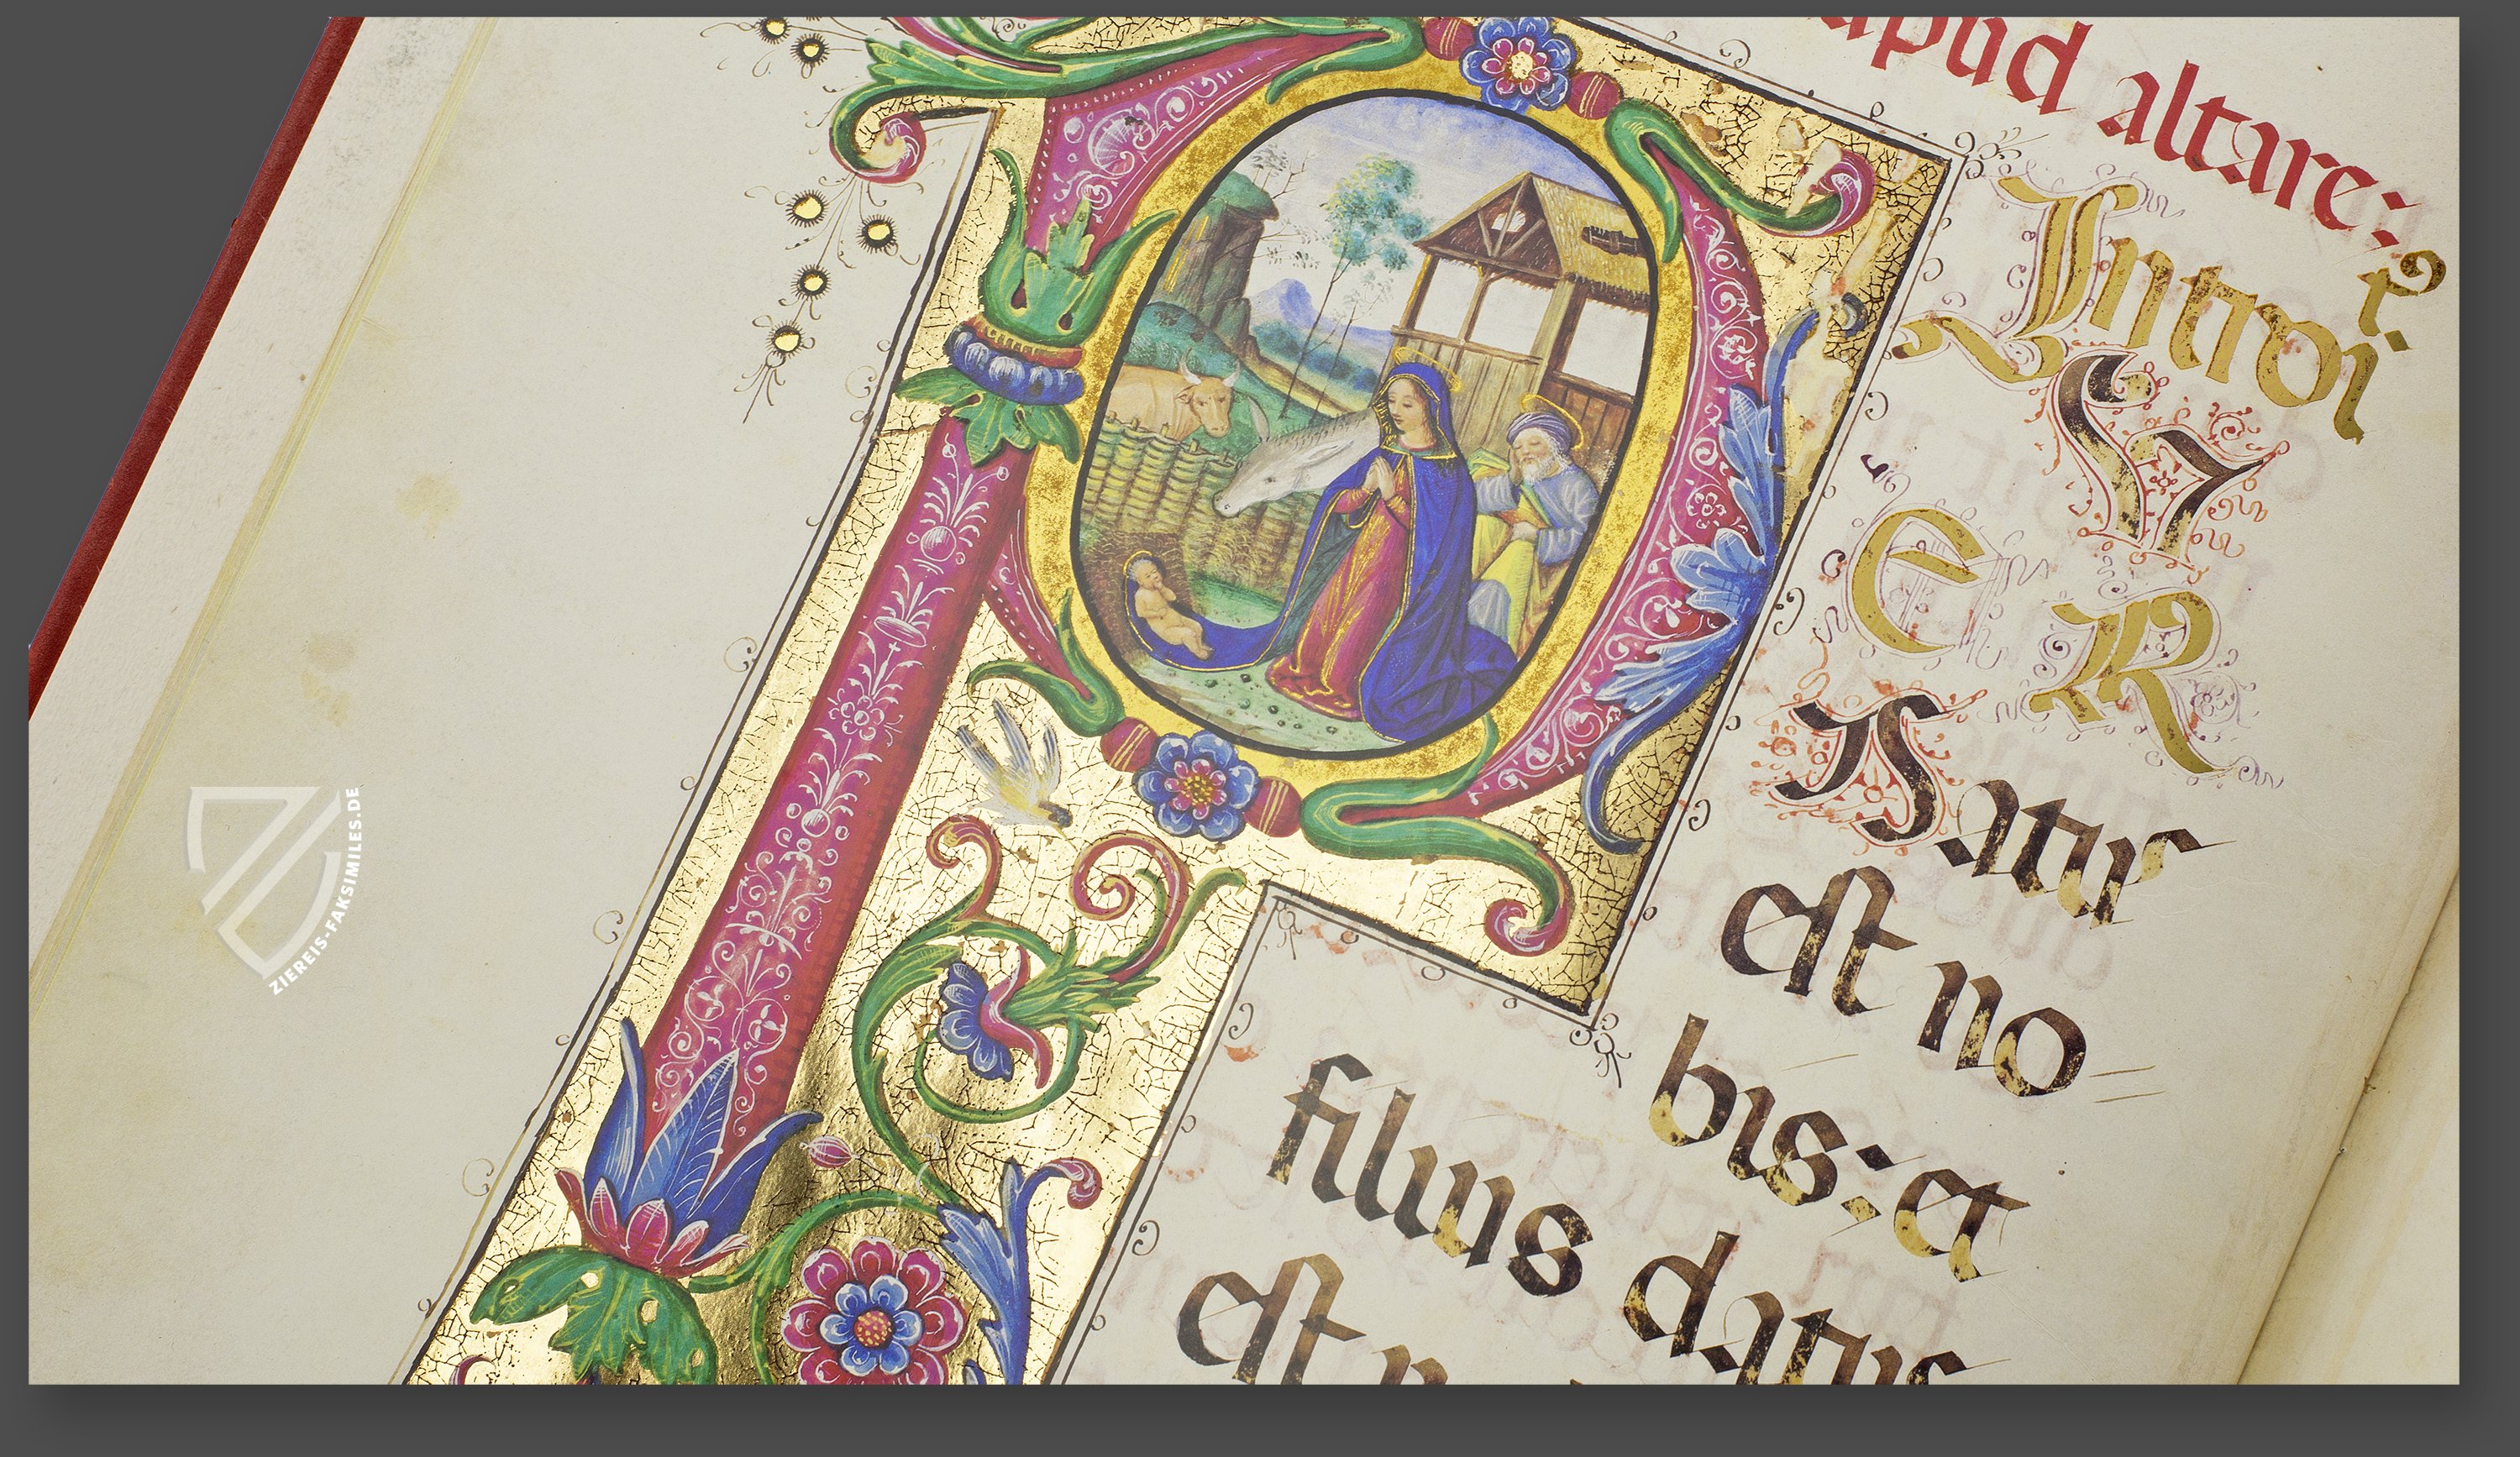 apud altare:
Introi
P U
E R
Natus
est no=
bis: et
filius datus
est
ZIEREIS-FAKSIMILES.DE